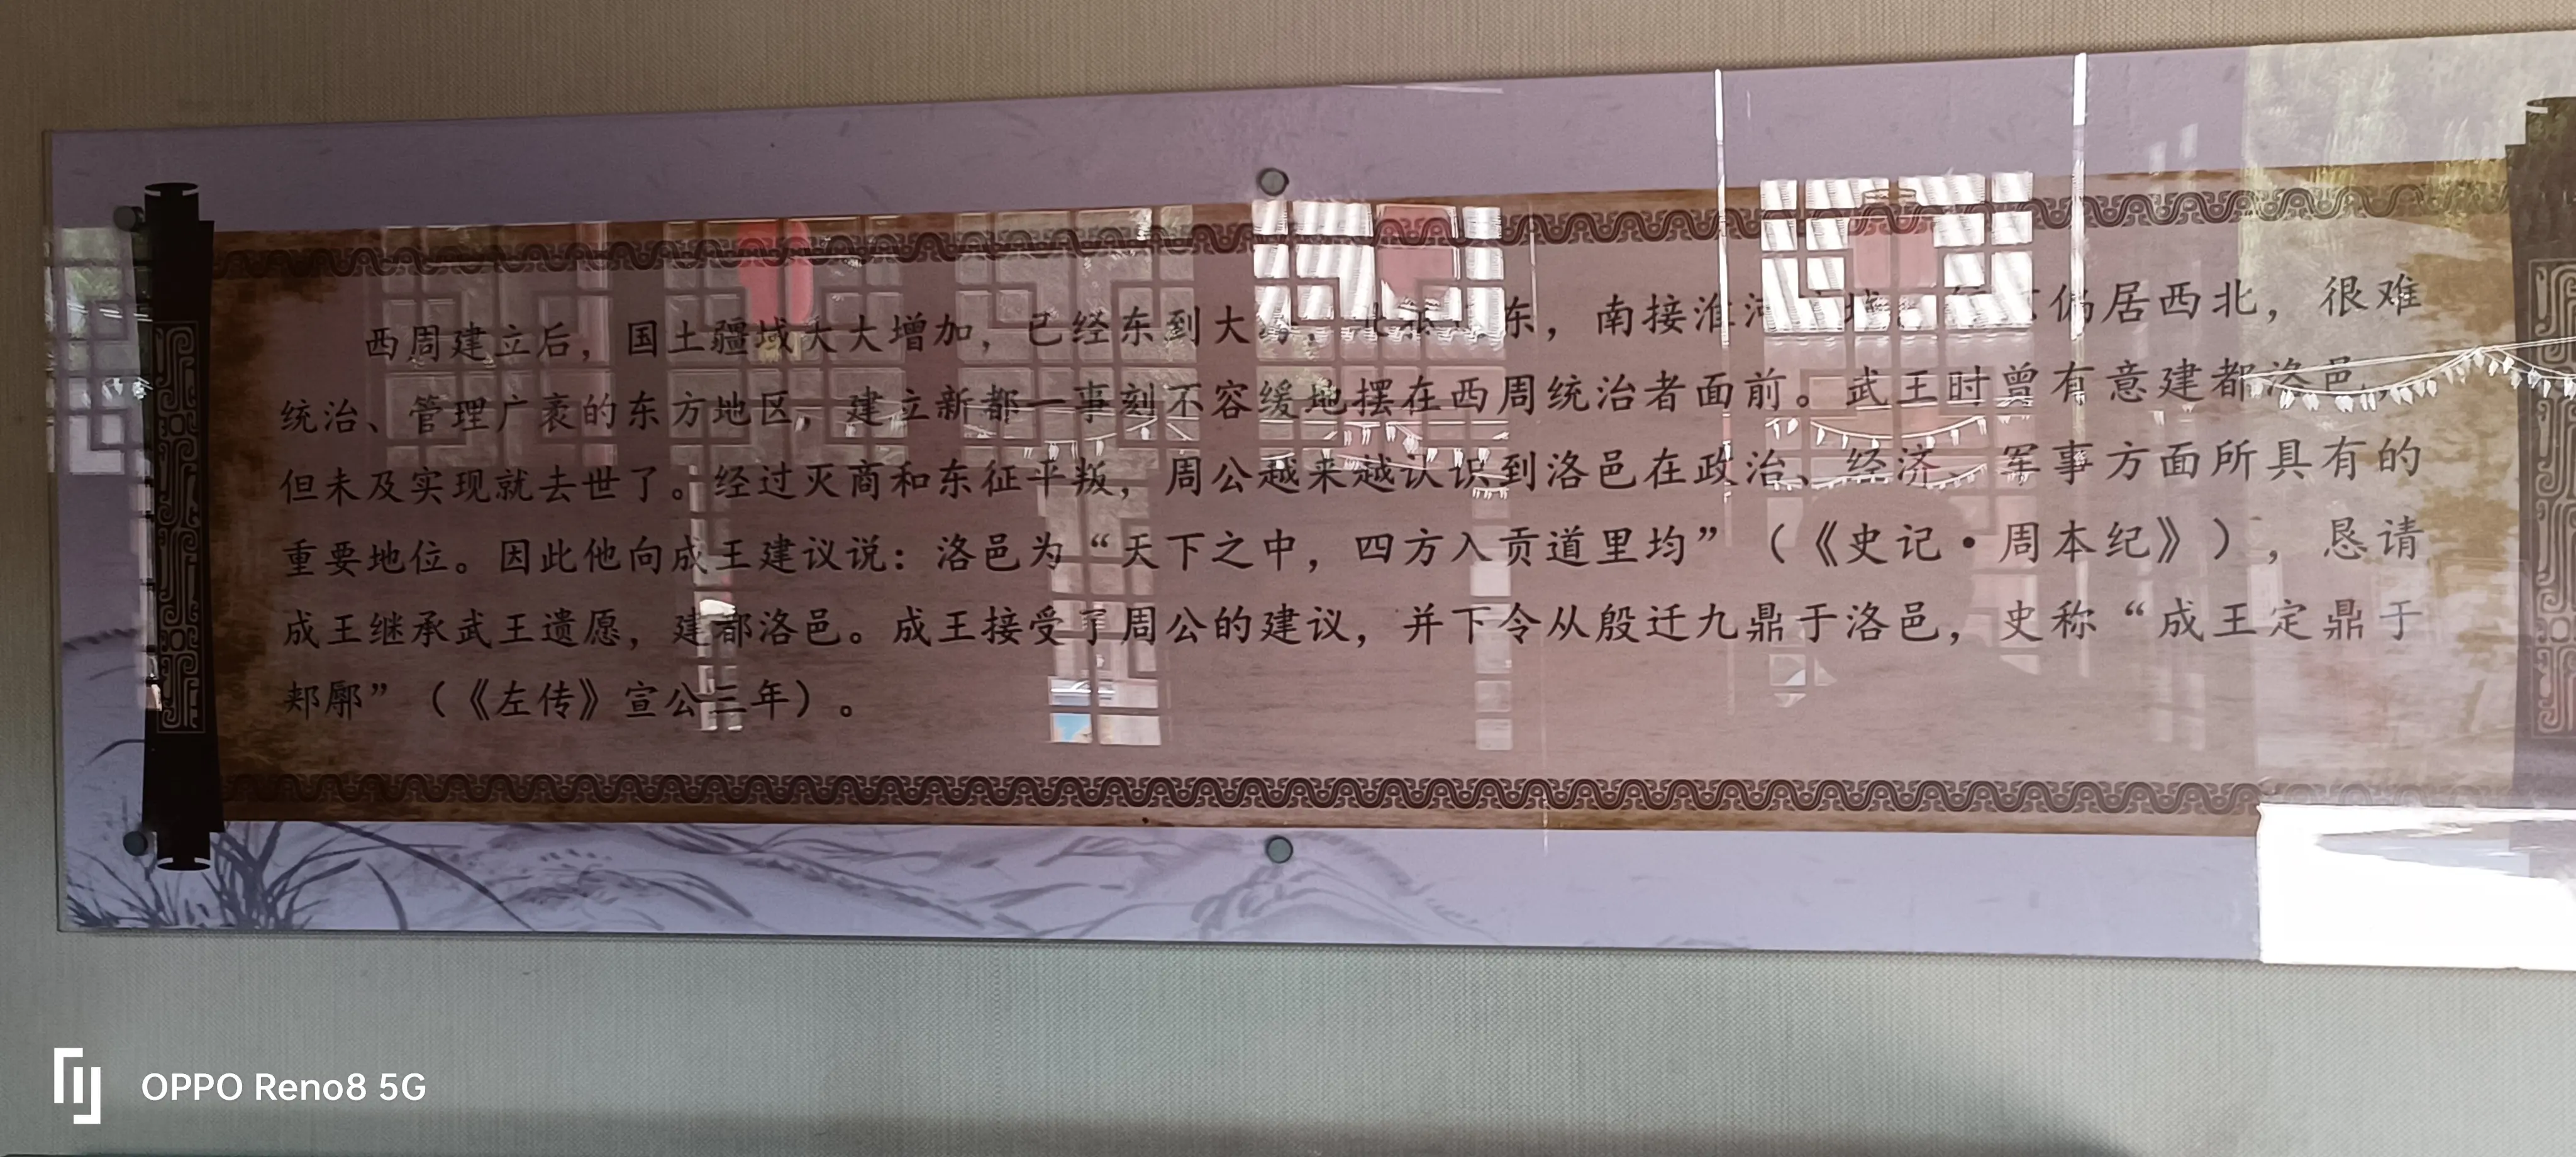 西周建立后，国土疆域大大增加，已经东到大，东，南接淮偏居西北，很难
统治、管理广袤的东方地区，建立新都一事刻不容缓地摆在西周统治者面前。武王时曾有意建都洛邑，
但未及实现就去世了。经过灭商和东征平叛，周公越来越认识到洛邑在政治、经济、军事方面所具有的
重要地位。因此他向成王建议说：洛邑为“天下之中，四方入贡道里均”（《史记·周本纪》），恳请
成王继承武王遗愿，建都洛邑。成王接受了周公的建议，并下令从殷迁九鼎于洛邑，史称“成王定鼎于
郏鄏”（《左传》宣公三年）。
OPPO Reno8 5G